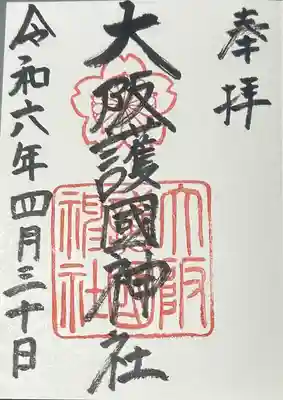 奉拝
大阪護國神社
大阪護國神社
令和六年四月三十日